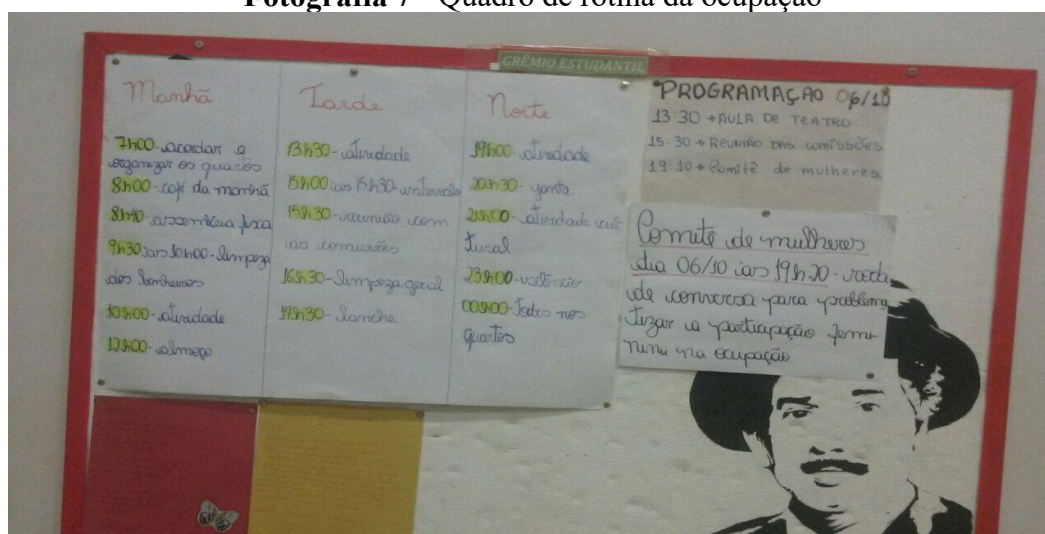 Fotografia 7 - Quadro de rotina da ocupação
GRÊMIO ESTUDANTIL
Manhã
7h00- acordar e
organizar os quartos
8h00- café da manhã
8h40- assembleia fixa
9h30 às 10h00- limpeza
dos banheiros
10h00- atividade
12h00- almoço
Tarde
13h30- atividade
15h00 às 15h30- intervalo
15h30- reunião com
as comissões
16h30- limpeza geral
17h30- lanche
Noite
19h00- atividade
20h30- janta
21h00- atividade cul-
tural
23h00- silêncio
00h00- Todos nos
quartos
PROGRAMAÇÃO 06/10
13:30 → AULA DE TEATRO
15:30 → REUNIÃO DAS COMISSÕES
19:30 → Comitê de mulheres
Comitê de mulheres
dia 06/10 às 19h30 - roda
de conversa para problema
tizar a participação femi-
nina na ocupação